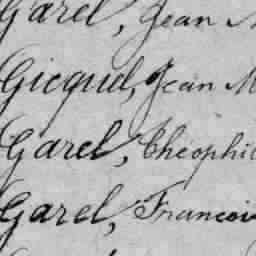 Garel, Jean M
Gicquel, Jean M
Garel, Théophi
Garel, Francois